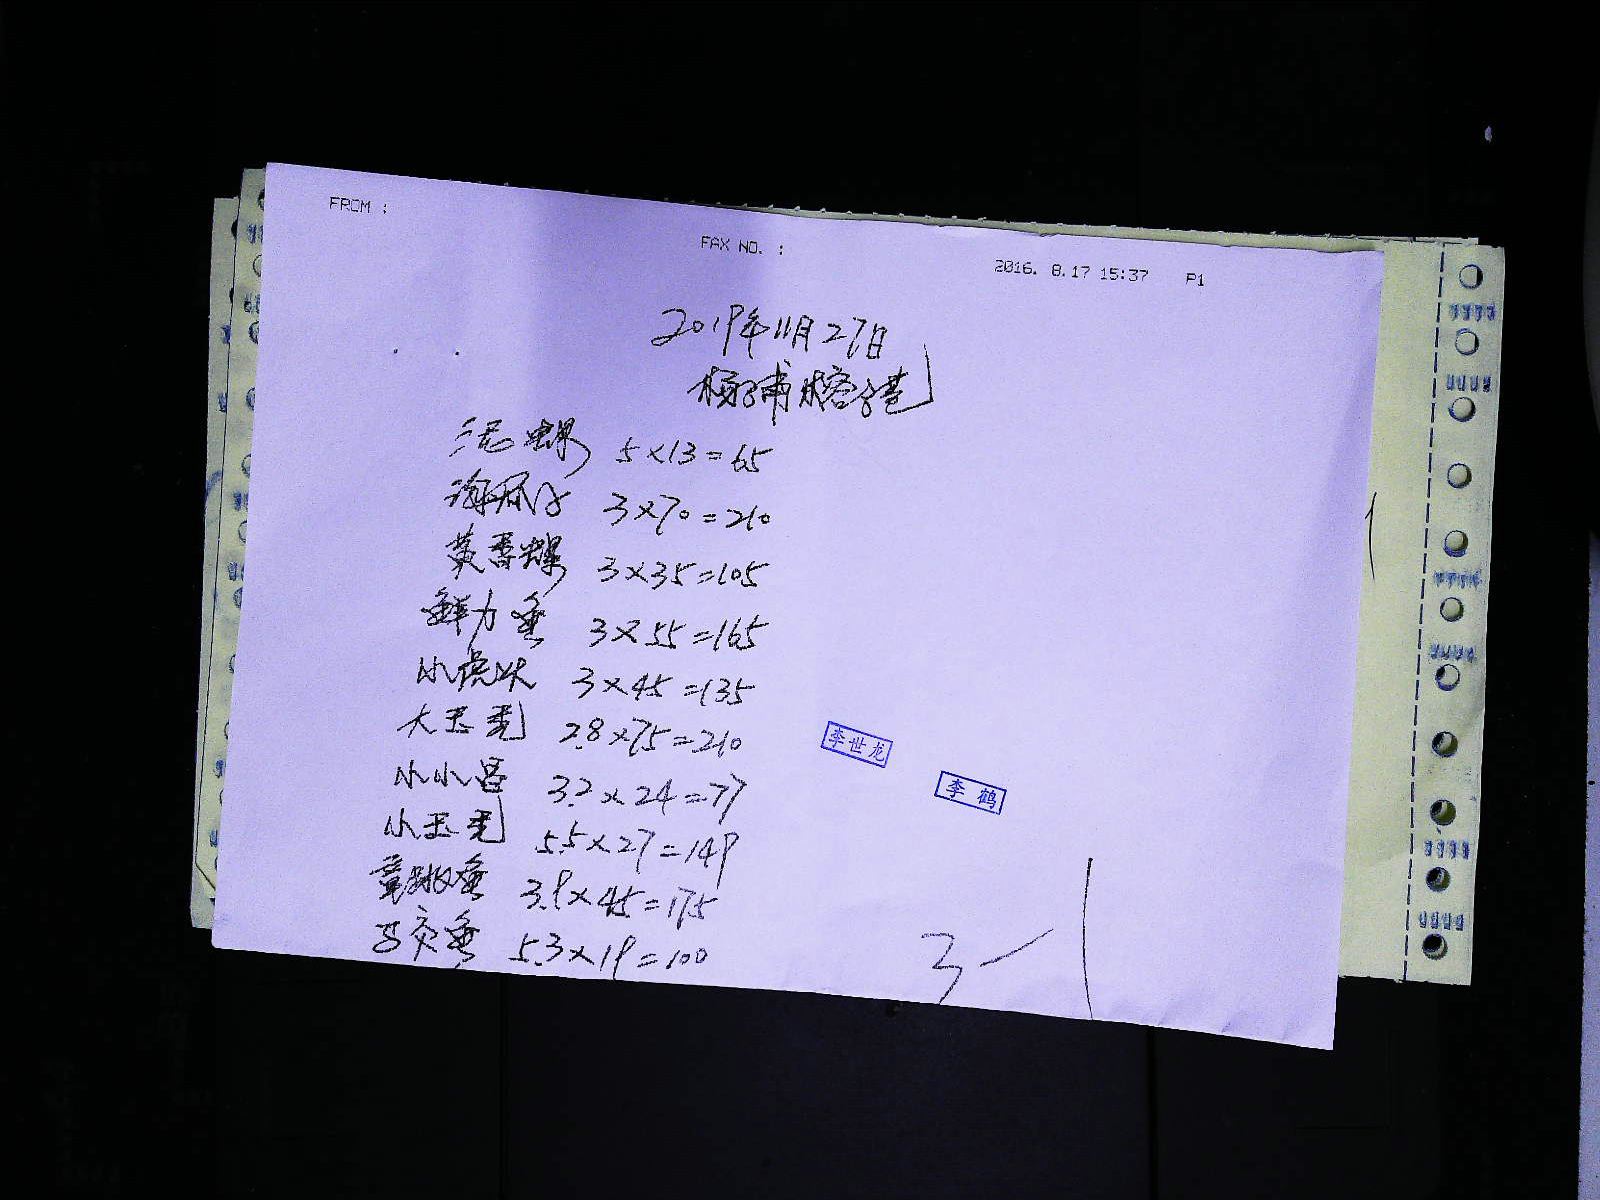 FROM :
FAX NO. :
2016. 8.17 15:37 P1
2019年11月27日
杨浦榕港
泥螺 5×13=65
海瓜子 3×70=210
黄香螺 3×35=105
鲜力鱼 3×55=165
小虎 3×45=135
大玉秃 2.8×75=210
小小昌 3.2×24=77
小玉秃 5.5×27=149
章跳鱼 3.9×45=175
马交鱼 5.3×19=100
李世龙
李鹤
3-1